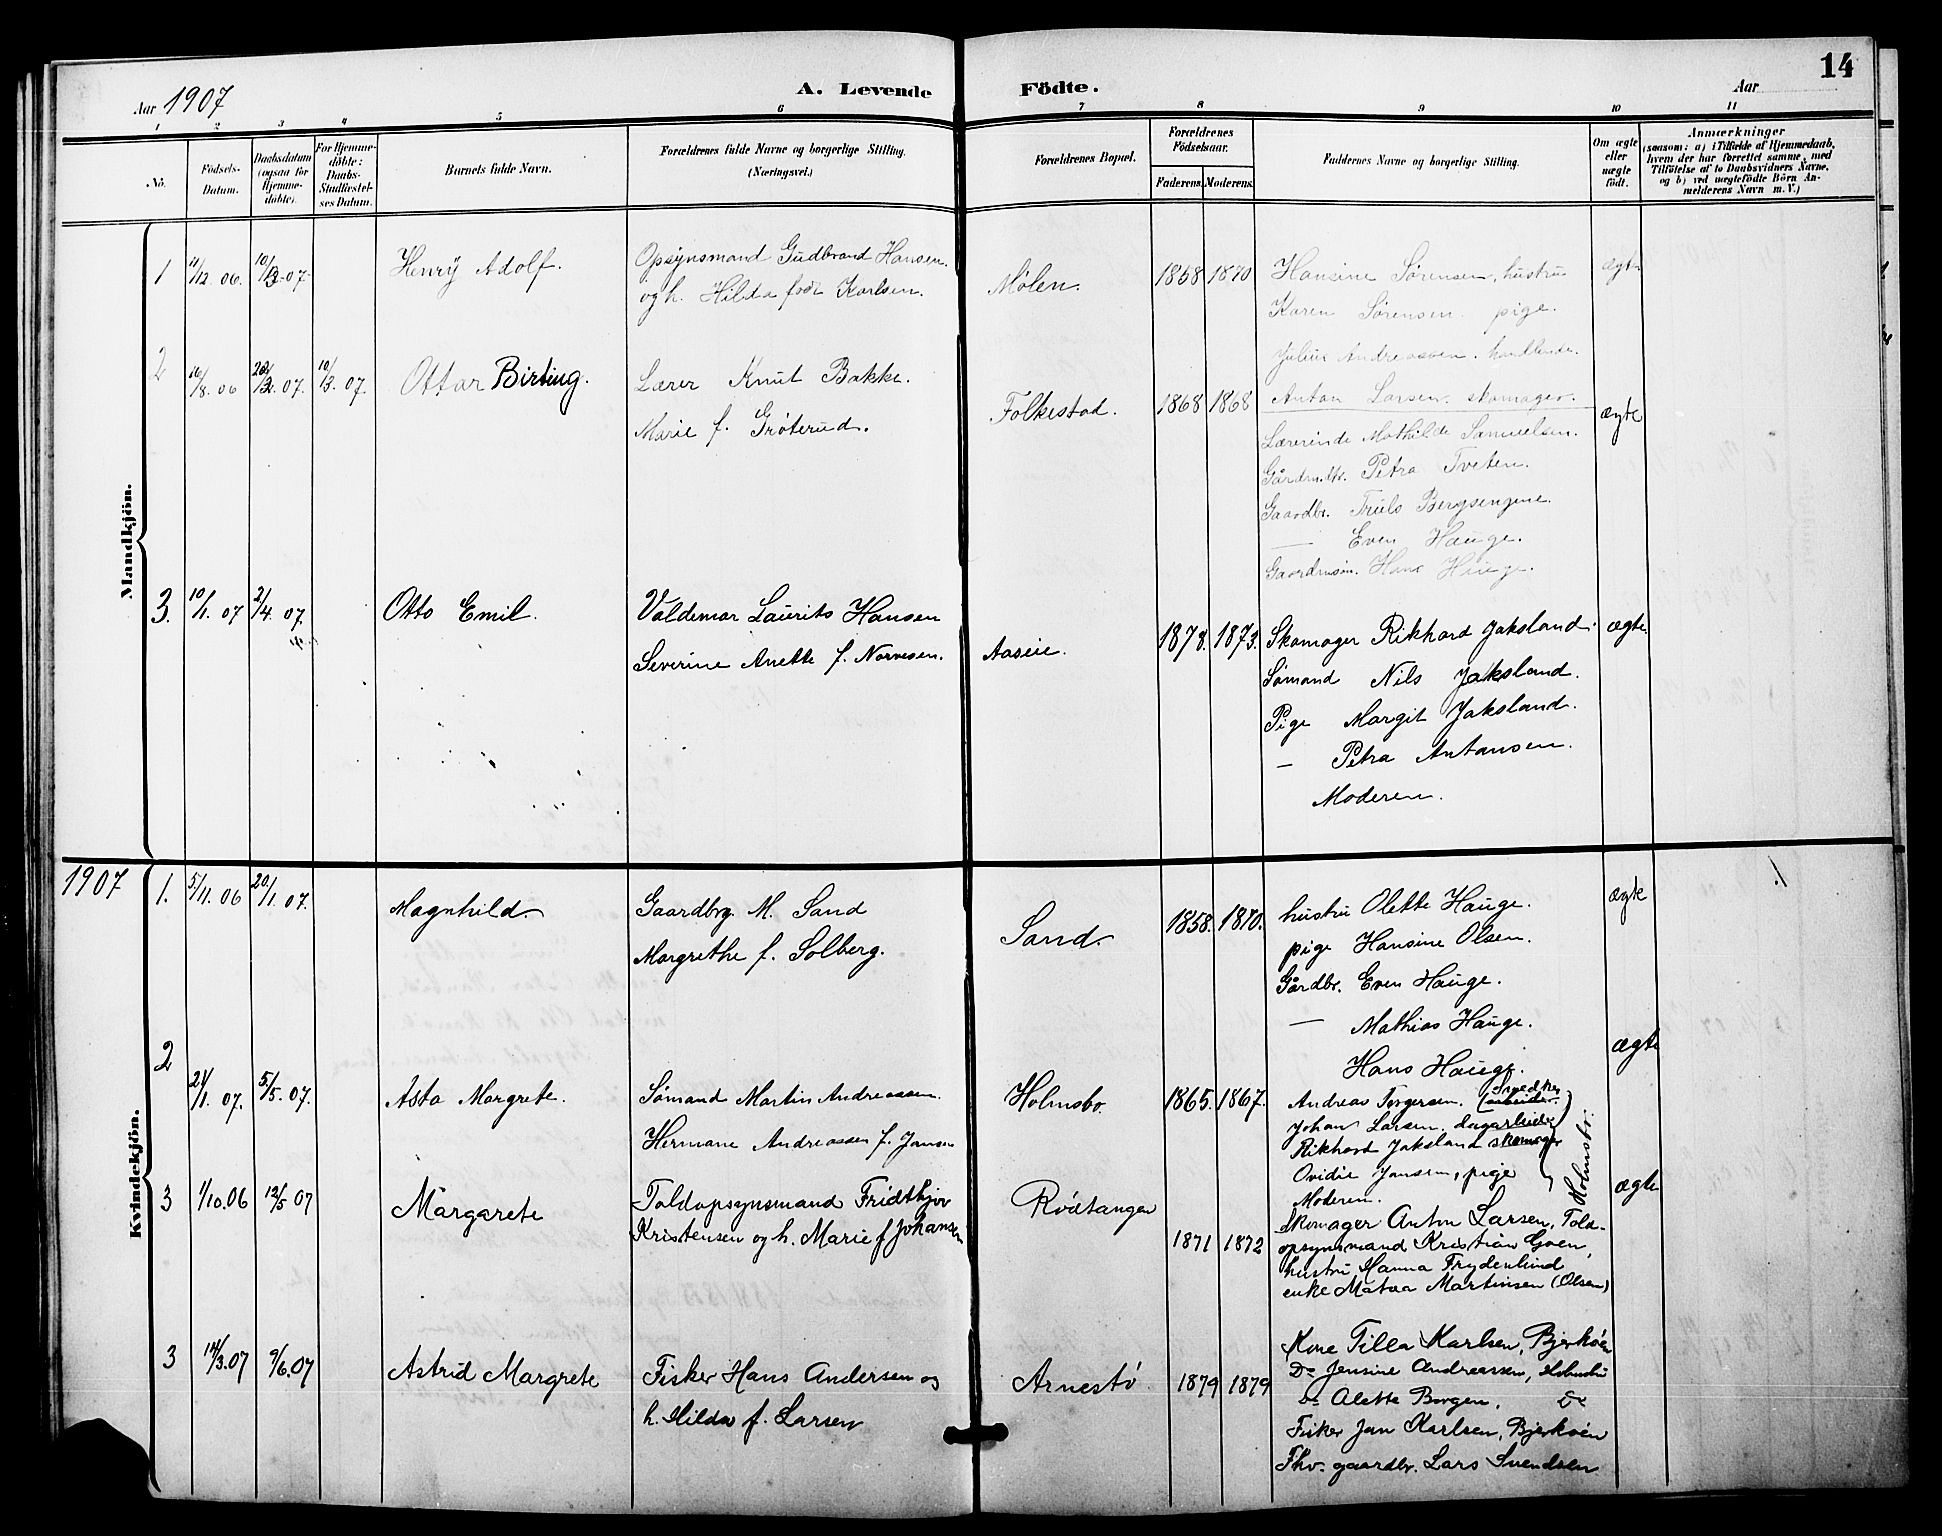 14
Aar 1907
A. Levende Födte.
Aar
1 2 3 4 5 6 7 8 9 10 11
No.
Födsels-Datum.
Daabsdatum (ogsaa for Hjemme-döbte).
For Hjemme-döbte: Daabs-Stadfæstel-ses Datum.
Barnets fulde Navn.
Forældrenes fulde Navne og borgerlige Stilling. (Næringsvei.)
Forældrenes Bopæl.
Forældrenes Födselsaar.
Faderens. Moderens.
Faddernes Navne og borgerlige Stilling.
Om ægte eller uægte födt.
Anmærkninger
(saasom: a) i Tilfælde af Hjemmedaab, hvem der har forrettet samme, med Tilföielse af to Daabsvidners Navne, og b) ved uægtefödte Börn An-melderens Navn m. V.)
Mandkjön.
1 11/12 06. 10/3 07. Henrÿ Adolf.
Opsÿnsmand Gudbrand Hansen.
og h. Hilda født Karlsen.
Mølen. 1858 1870
Hansine Sørensen, hustru
Karen Sørensen. pige.
Julius Andreassen. handlende.
Anton Larsen. skomager.
ægte
2 16/8. 06 07. 10/3. 07. Ottar Birting.
Lærer Knut Bakke.
Marie f. Grøterud.
Folkestad. 1868 1868
Lærerinde Mathilde Samuelsen.
Gårdm.dtr. Petra Tveten.
Gaardbr. Truls Bergsengene.
— Even Hauge.
Gaardmsøn. Hans Hauge.
ægte
3. 10/1. 07 2/4. 07. Otto Emil.
Valdemar Laurits Hansen
Severine Anette f. Norvesen.
Aaseie. 1878. 1873.
Skomager Rikhard Jaksland.
Sømand Nils Jaksland.
Pige Margit Jaksland.
— Petra Antonsen.
Moderen.
ægte.
1907
Kvindekjön.
1. 5/11. 06 20/1. 07. Magnhild
Gaardbrg. M. Sand
Margrethe f. Solberg.
Sand. 1858. 1870.
hustru Olette Hauge.
pige Hansine Olsen.
Gårdbr. Even Hauge.
— Mathias Hauge.
Hans Hauge.
ægte
2 21/1. 07. 5/5. 07. Asta Margrete.
Sømand Martin Andreassen.
Hermane Andreassen f. Jansen
Holmsbo. 1865. 1867.
Andreas Torgersen.
Johan Larsen. dagarbeider
Rikhard Jaksland skomager
Ovidie Jansen, pige
Moderen.
Holmsbo.
ægte
3 1/10.06 12/5 07 Margarete
Toldopsynsmand Fridthjov
Kristensen og h. Marie f Johansen
Rødtangen 1871 1872
Skomager Anton Larsen, Told-
opsynsmand Kristian Goen,
hustru Hanna Frydenlund
enke Matea Martinsen (Olsen)
ægte
3 14/3.07 9/6.07 Astrid Margrete
Fisker Hans Andersen og
h. Hilda f. Larsen
Arnestø 1879 1879
Kone Tilla Karlsen, Bjerkøen
Do Jensine Andreassen, Holmsbu
Do Alette Borgen, Do
Fisker Jan Karlsen, Bjerkøen
Fhv. gaardbr. Lars Svendsen